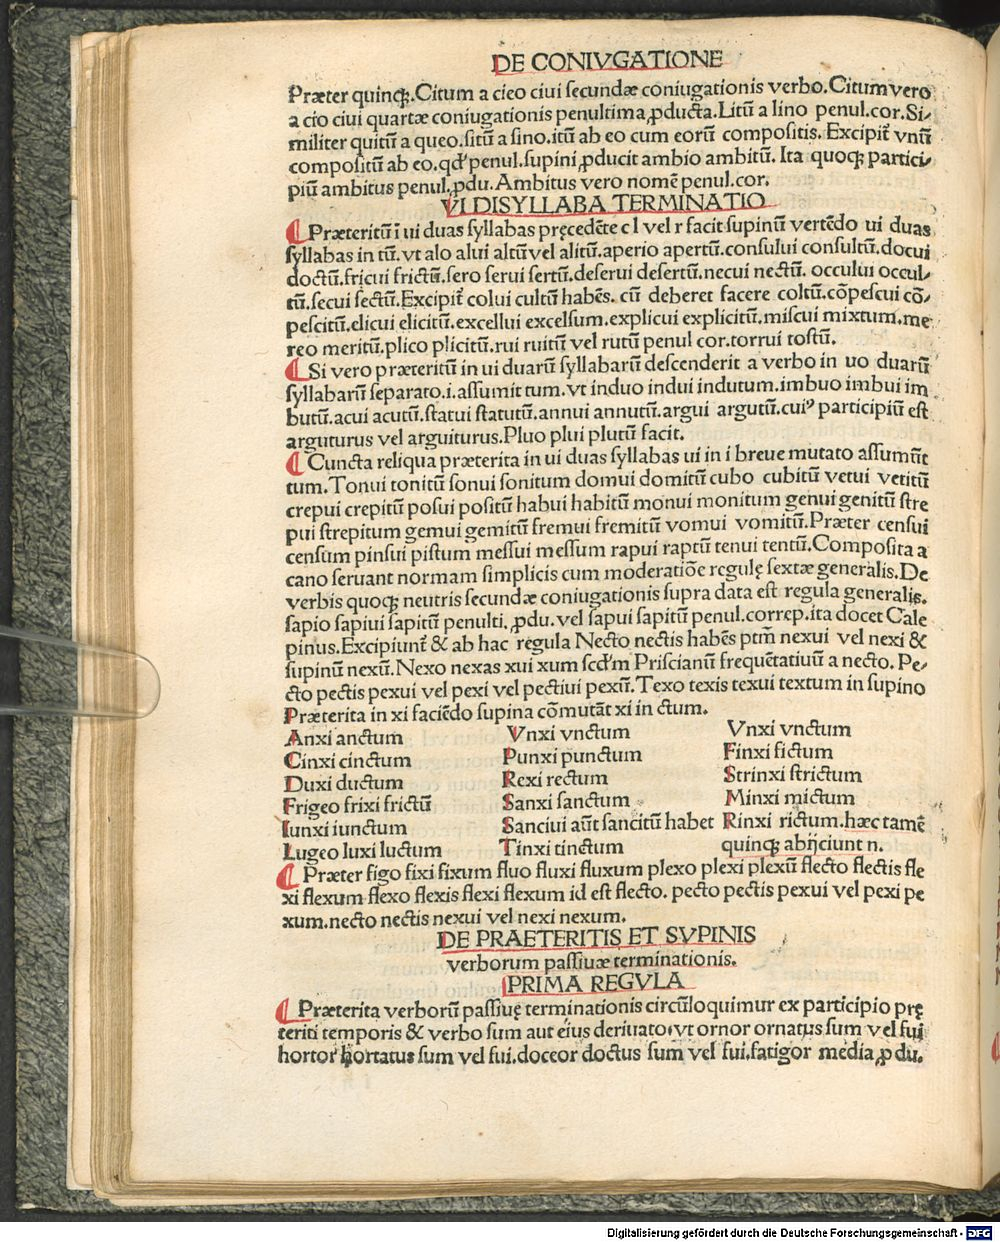 DE CONIVGATIONE
Præter quinq̃.Citum a cieo ciui secundæ coniugationis verbo.Citum vero
a cio ciui quartæ coniugationis penultima ꝓducta.Litũ a lino penul.cor.Si/
militer quitũ a queo.sitũ a sino.itũ ab eo cum eorũ compositis. Excipit̃ vnũ
compositũ ab eo.qd' penul.supini ꝓducit ambio ambitũ. Ita quoq; partici/
piũ ambitus penul.ꝓdu.Ambitus vero nomẽ penul.cor.
VI DISYLLABA TERMINATIO
Præteritũ ĩ ui duas syllabas pręcedẽte c l vel r facit supinũ vertẽdo ui duas
syllabas in tũ. vt alo alui altũ vel alitũ.aperio apertũ.consului consultũ.docui
doctũ.fricui frictũ.sero serui sertũ.deserui desertũ.necui nectũ. occului occul/
tũ.secui sectũ.Excipit̃ colui cultũ habẽs. cũ deberet facere coltũ.cõpescui cõ/
pescitũ.elicui elicitũ.excellui excelsum.explicui explicitũ.miscui mixtum.me
reo meritũ.plico plicitũ.rui ruitũ vel rutũ penul cor.torrui tostũ.
Si vero præteritũ in ui duarũ syllabarũ descenderit a verbo in uo duarũ
syllabarũ separato.i.assumit tum. vt induo indui indutum.imbuo imbui im
butũ.acui acutũ.statui statutũ.annui annutũ.argui argutũ.cuiꝰ participiũ est
arguturus vel arguiturus.Pluo plui plutũ facit.
Cuncta reliqua præterita in ui duas syllabas ui in i breue mutato assumũt
tum.Tonui tonitũ sonui sonitum domui domitũ cubo cubitũ vetui vetitũ
crepui crepitũ posui positũ habui habitũ monui monitum genui genitũ stre
pui strepitum gemui gemitũ fremui fremitũ vomui vomitũ.Præter censui
censum pinsui pistum messui messum rapui raptũ tenui tentũ.Composita a
cano seruant normam simplicis cum moderatiõe regulę sextæ generalis.De
verbis quoq; neutris secundæ coniugationis supra data est regula generalis.
sapio sapiui sapitũ penulti.ꝓdu. vel sapui sapitũ penul.correp.ita docet Cale
pinus.Excipiunt̃ & ab hac regula Necto nectis habẽs ptm̃ nexui vel nexi &
supinũ nexũ.Nexo nexas xui xum scd'm Priscianũ frequẽtatiuũ a necto. Pe/
cto pectis pexui vel pexi vel pectiui pexũ.Texo texis texui textum in supino
Præterita in xi faciẽdo supina cõmutãt xi in ctum.
Anxi anctum Vnxi vnctum Vnxi vnctum
Cinxi cinctum Punxi punctum Finxi fictum
Duxi ductum Rexi rectum Strinxi strictum
Frigeo frixi frictũ Sanxi sanctum Minxi mictum
Iunxi iunctum Sanciui aũt sancitũ habet Rinxi rictum.hæc tamẽ
Lugeo luxi luctum Tinxi tinctum quinq; abijciunt n.
Præter figo fixi fixum fluo fluxi fluxum plexo plexi plexũ flecto flectis fle
xi flexum flexo flexis flexi flexum id est flecto. pecto pectis pexui vel pexi pe
xum.necto nectis nexui vel nexi nexum.
DE PRAETERITIS ET SVPINIS
verborum passiuæ terminationis.
PRIMA REGVLA
Præterita verborũ passiuę terminationis circũloquimur ex participio prę
teriti temporis & verbo sum aut eius deriuato.vt ornor ornatus sum vel fui
hortor hortatus sum vel fui.doceor doctus sum vel fui.fatigor media ꝓ du.
Digitalisierung gefördert durch die Deutsche Forschungsgemeinschaft - DFG